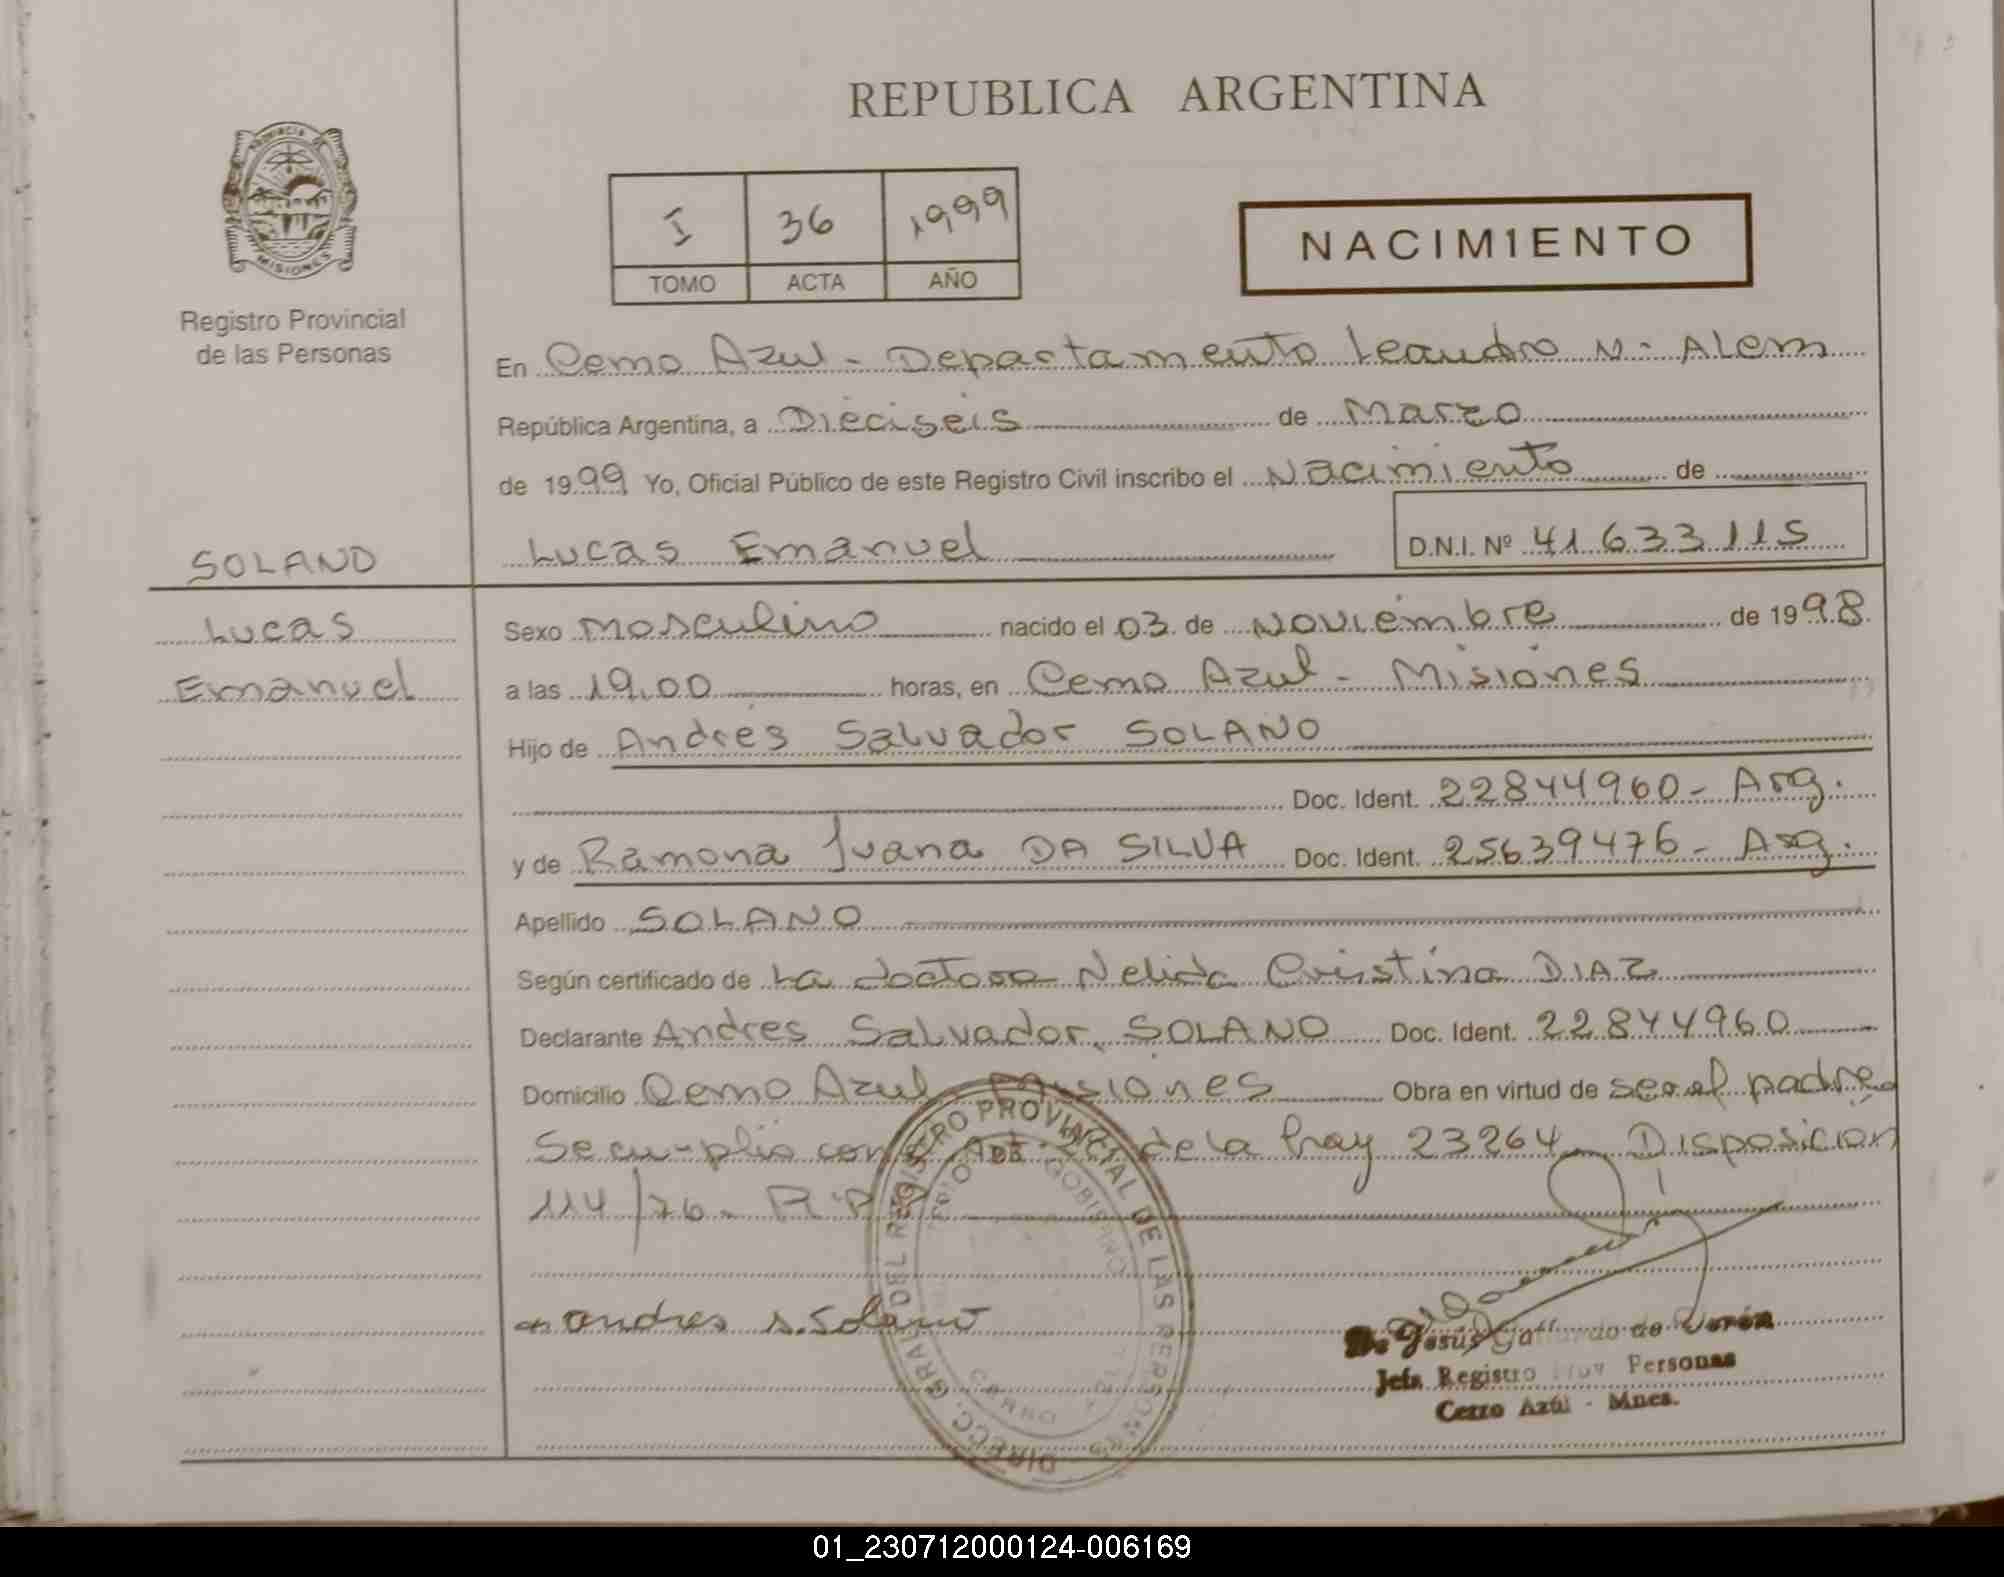 REPUBLICA ARGENTINA
PROVINCIA DE
MISIONES
Registro Provincial
de las Personas
I 36 1999
TOMO ACTA AÑO
NACIMIENTO
En Cerro Azul - Departamento Leandro N. Alem
República Argentina, a Dieciseis de Marzo
de 1999 Yo, Oficial Público de este Registro Civil inscribo el Nacimiento de
SOLANO
Lucas Emanuel D.N.I. Nº 41 633 115
Lucas
Emanuel
Sexo Masculino nacido el 03 de Noviembre de 1998
a las 19.00 horas, en Cerro Azul - Misiones
Hijo de Andres Salvador SOLANO
Doc. Ident. 22844960 - Arg.
y de Ramona Juana DA SILVA Doc. Ident. 25639476 - Arg.
Apellido SOLANO
Según certificado de La doctora Nelida Cristina DIAZ
Declarante Andres Salvador SOLANO Doc. Ident. 22844960
Domicilio Cerro Azul Misiones Obra en virtud de ser el padre
Se cumplio con Art. de la 23264 Disposicion
114/76 - R.P.
andres s. Solano
DIRECC. GRAL. DEL REGISTRO PROVINCIAL DE LAS PERSONAS
GOBIERNO
CERRO AZUL
De Jesús Gallardo de Verón
Jefa Registro Prov Personas
Cerro Azúl - Mnes.
01_230712000124-006169